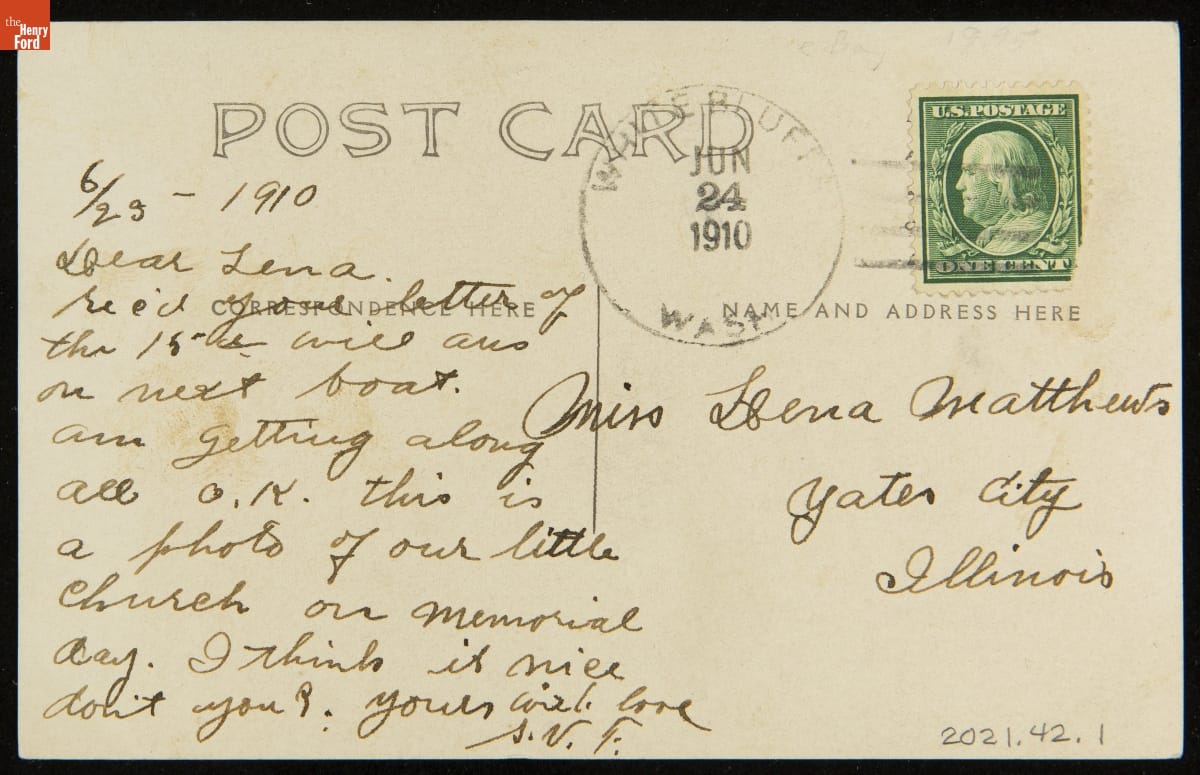 the
Henry
Ford
POST CARD
WHITE BLUFFS
JUN
24
1910
WASH
U.S. POSTAGE
ONE CENT
6/23 - 1910
Dear Lena.
Rec'd your letter of
the 15th will ans
on next boat.
am getting along
all O.K. this is
a photo of our little
church on memorial
day. I think it nice
don't you?. yours with love
S.V.F.
CORRESPONDENCE HERE
NAME AND ADDRESS HERE
Miss Lena Matthews
Yates City
Illinois
2021.42.1